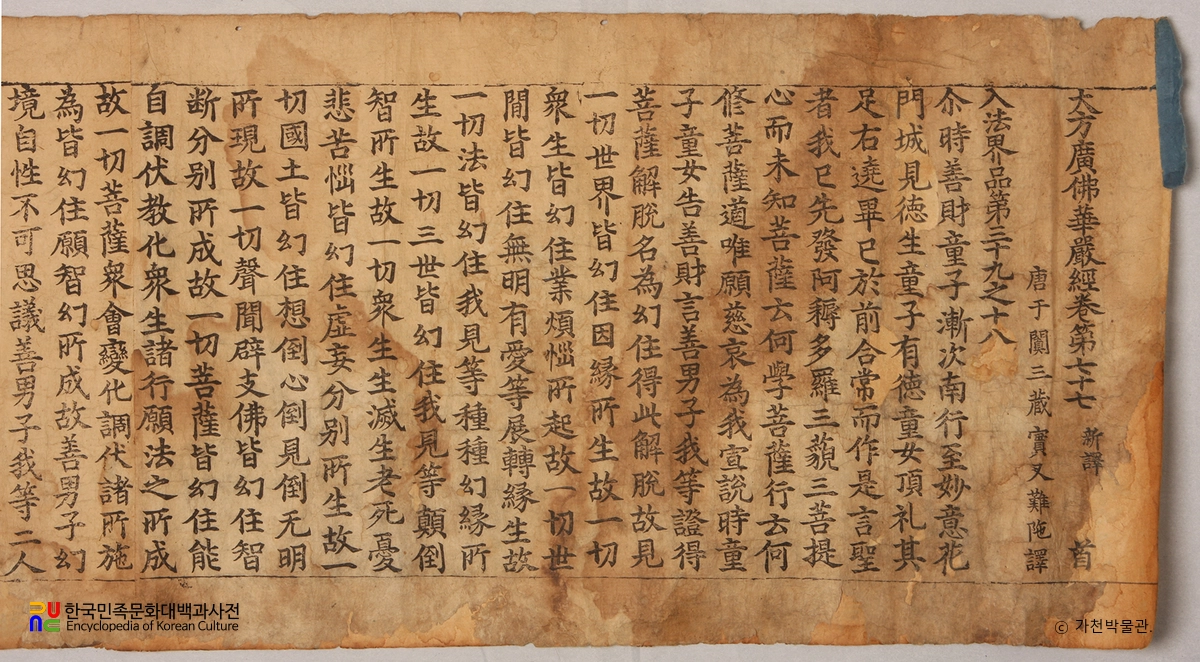 大方廣佛華嚴經卷第七十七 新譯 首
唐于闐三藏實叉難陁譯
入法界品第三十九之十八
尒時善財童子漸次南行至妙意花
門城見徳生童子有徳童女頂礼其
足右遶畢已於前合常而作是言聖
者我已先發阿耨多羅三藐三菩提
心而未知菩薩云何學菩薩行云何
修菩薩道唯願慈哀為我宣說時童
子童女告善財言善男子我等證得
菩薩解脫名為幻住得此解脫故見
一切世界皆幻住因縁所生故一切
衆生皆幻住業煩惱所起故一切世
間皆幻住無明有愛等展轉縁生故
一切法皆幻住我見等種種幻縁所
生故一切三世皆幻住我見等顛倒
智所生故一切衆生生滅生老死憂
悲苦惱皆幻住虛妄分别所生故一
切國土皆幻住想倒心倒見倒无明
所現故一切聲聞辟支佛皆幻住智
断分别所成故一切菩薩皆幻住能
自調伏教化衆生諸行願法之所成
故一切菩薩衆會變化調伏諸所施
為皆幻住願智幻所成故善男子幻
境自性不可思議善男子我等二人
한국민족문화대백과사전
Encyclopedia of Korean Culture
© 가천박물관.